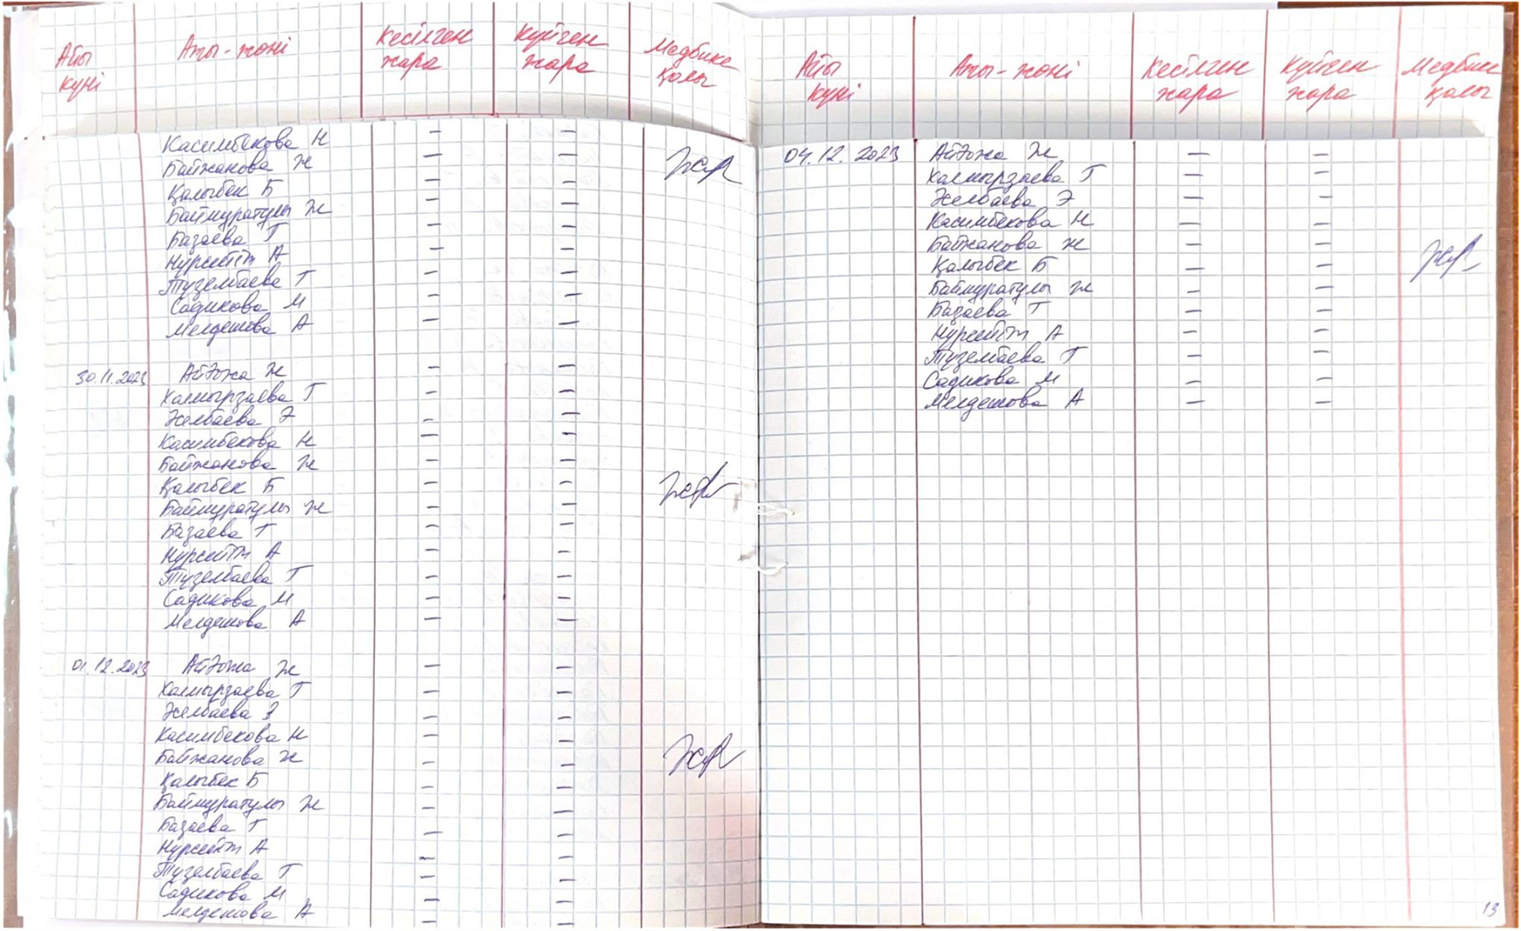 Айы Аты-жөні Кесілген Күйген Медбике
күні жара жара қолы
Касимбекова Н — —
Байжанова Ж — —
Қалыбек Б — —
Баймуратулы Ж — —
Базаева Т — —
Нурсейт А — —
Тузелбаева Г — —
Садикова М — —
Мелдешова А — —
30.11.2023 Айқожа Ж — —
Халмырзаева Г — —
Желбаева Э — —
Касимбекова Н — —
Байжанова Ж — —
Қалыбек Б — —
Баймуратулы Ж — —
Базаева Т — —
Нурсейт А — —
Тузелбаева Г — —
Садикова М — —
Мелдешова А — —
01.12.2023 Айқожа Ж — —
Халмырзаева Г — —
Желбаева Э — —
Касимбекова Н — —
Байжанова Ж — —
Қалыбек Б — —
Баймуратулы Ж — —
Базаева Т — —
Нурсейт А — —
Тузелбаева Г — —
Садикова М — —
Мелдешова А — —
Айы Аты-жөні Кесілген Күйген Медбике
күні жара жара қолы
04.12.2023 Айқожа Ж — —
Халмырзаева Г — —
Желбаева Э — —
Касимбекова Н — —
Байжанова Ж — —
Қалыбек Б — —
Баймуратулы Ж — —
Базаева Т — —
Нурсейт А — —
Тузелбаева Г — —
Садикова М — —
Мелдешова А — —
13